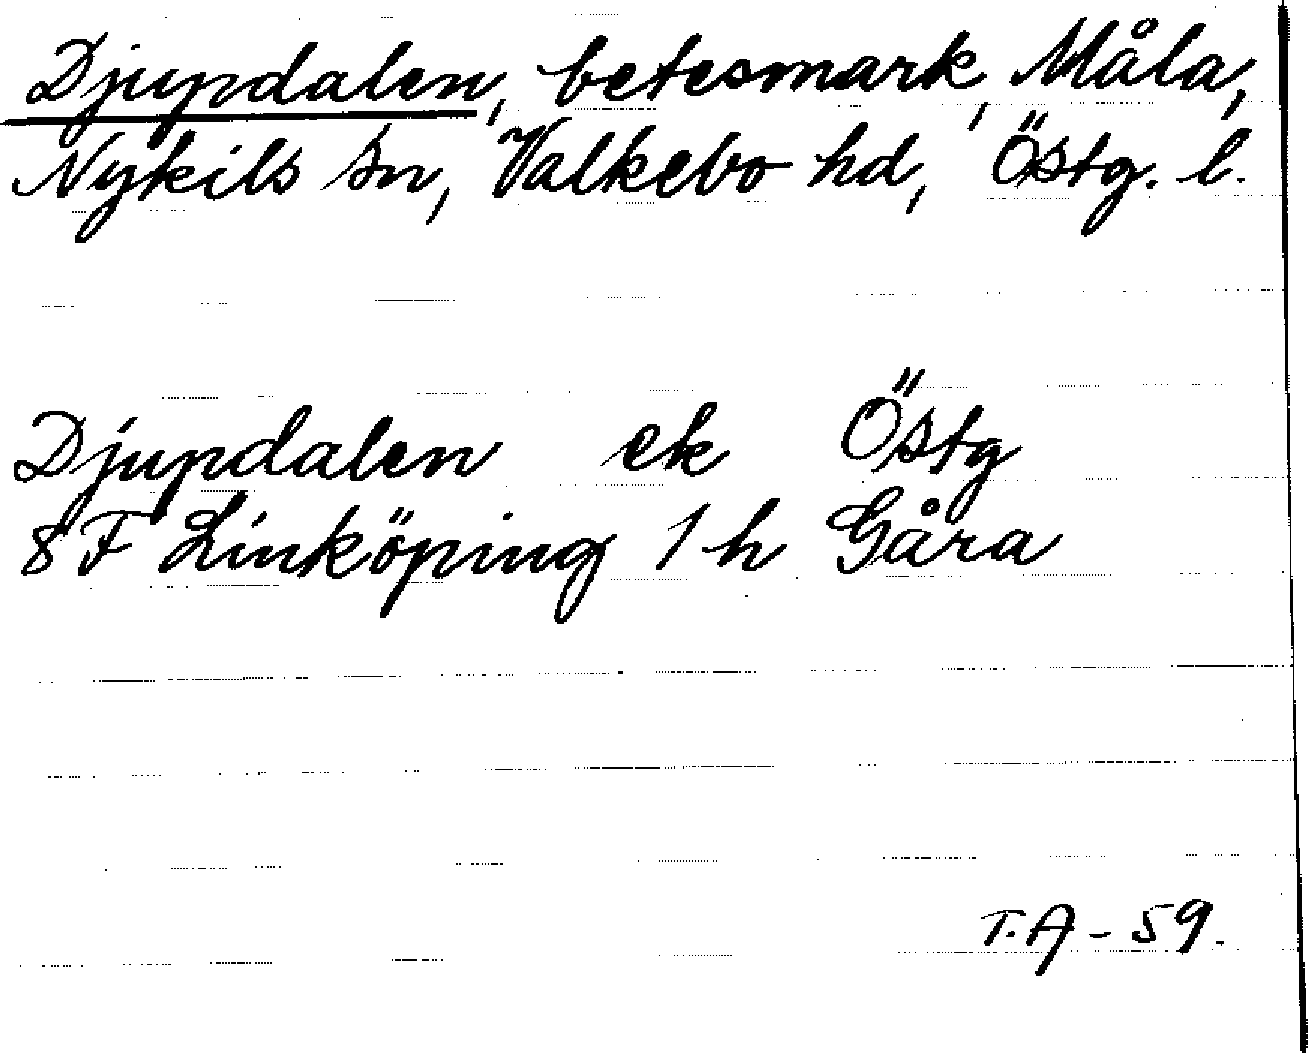 Djupdalen, betesmark, Måla,
Nykils sn, Valkebo hd, Östg. l.
Djupdalen ek Östg
8 F Linköping 1 h Gåra
T.A - 59.